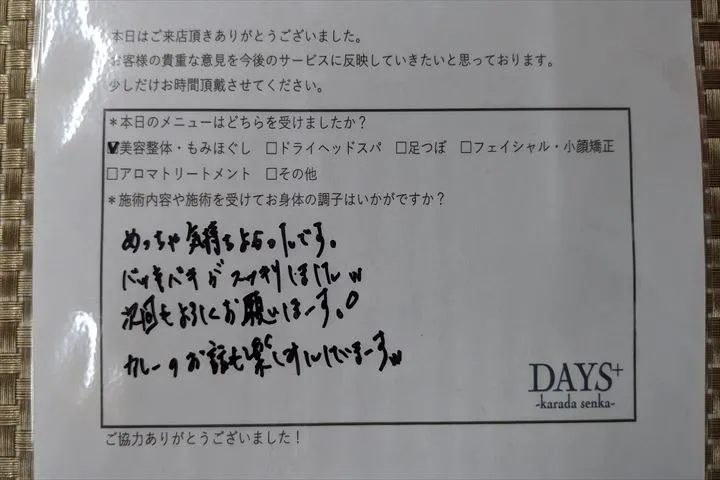 本日はご来店頂きありがとうございました。
お客様の貴重な意見を今後のサービスに反映していきたいと思っております。
少しだけお時間頂戴させてください。
*本日のメニューはどちらを受けましたか？
☑美容整体・もみほぐし □ドライヘッドスパ □足つぼ □フェイシャル・小顔矯正
□アロマトリートメント □その他
*施術内容や施術を受けてお身体の調子はいかがですか？
めっちゃ気持ちよかったです。
バッキバキがスッキリしましたw
次回もよろしくお願いしまーす。
カレーのお話も楽しみにしてまーすw
DAYS+
-karada senka-
ご協力ありがとうございました！